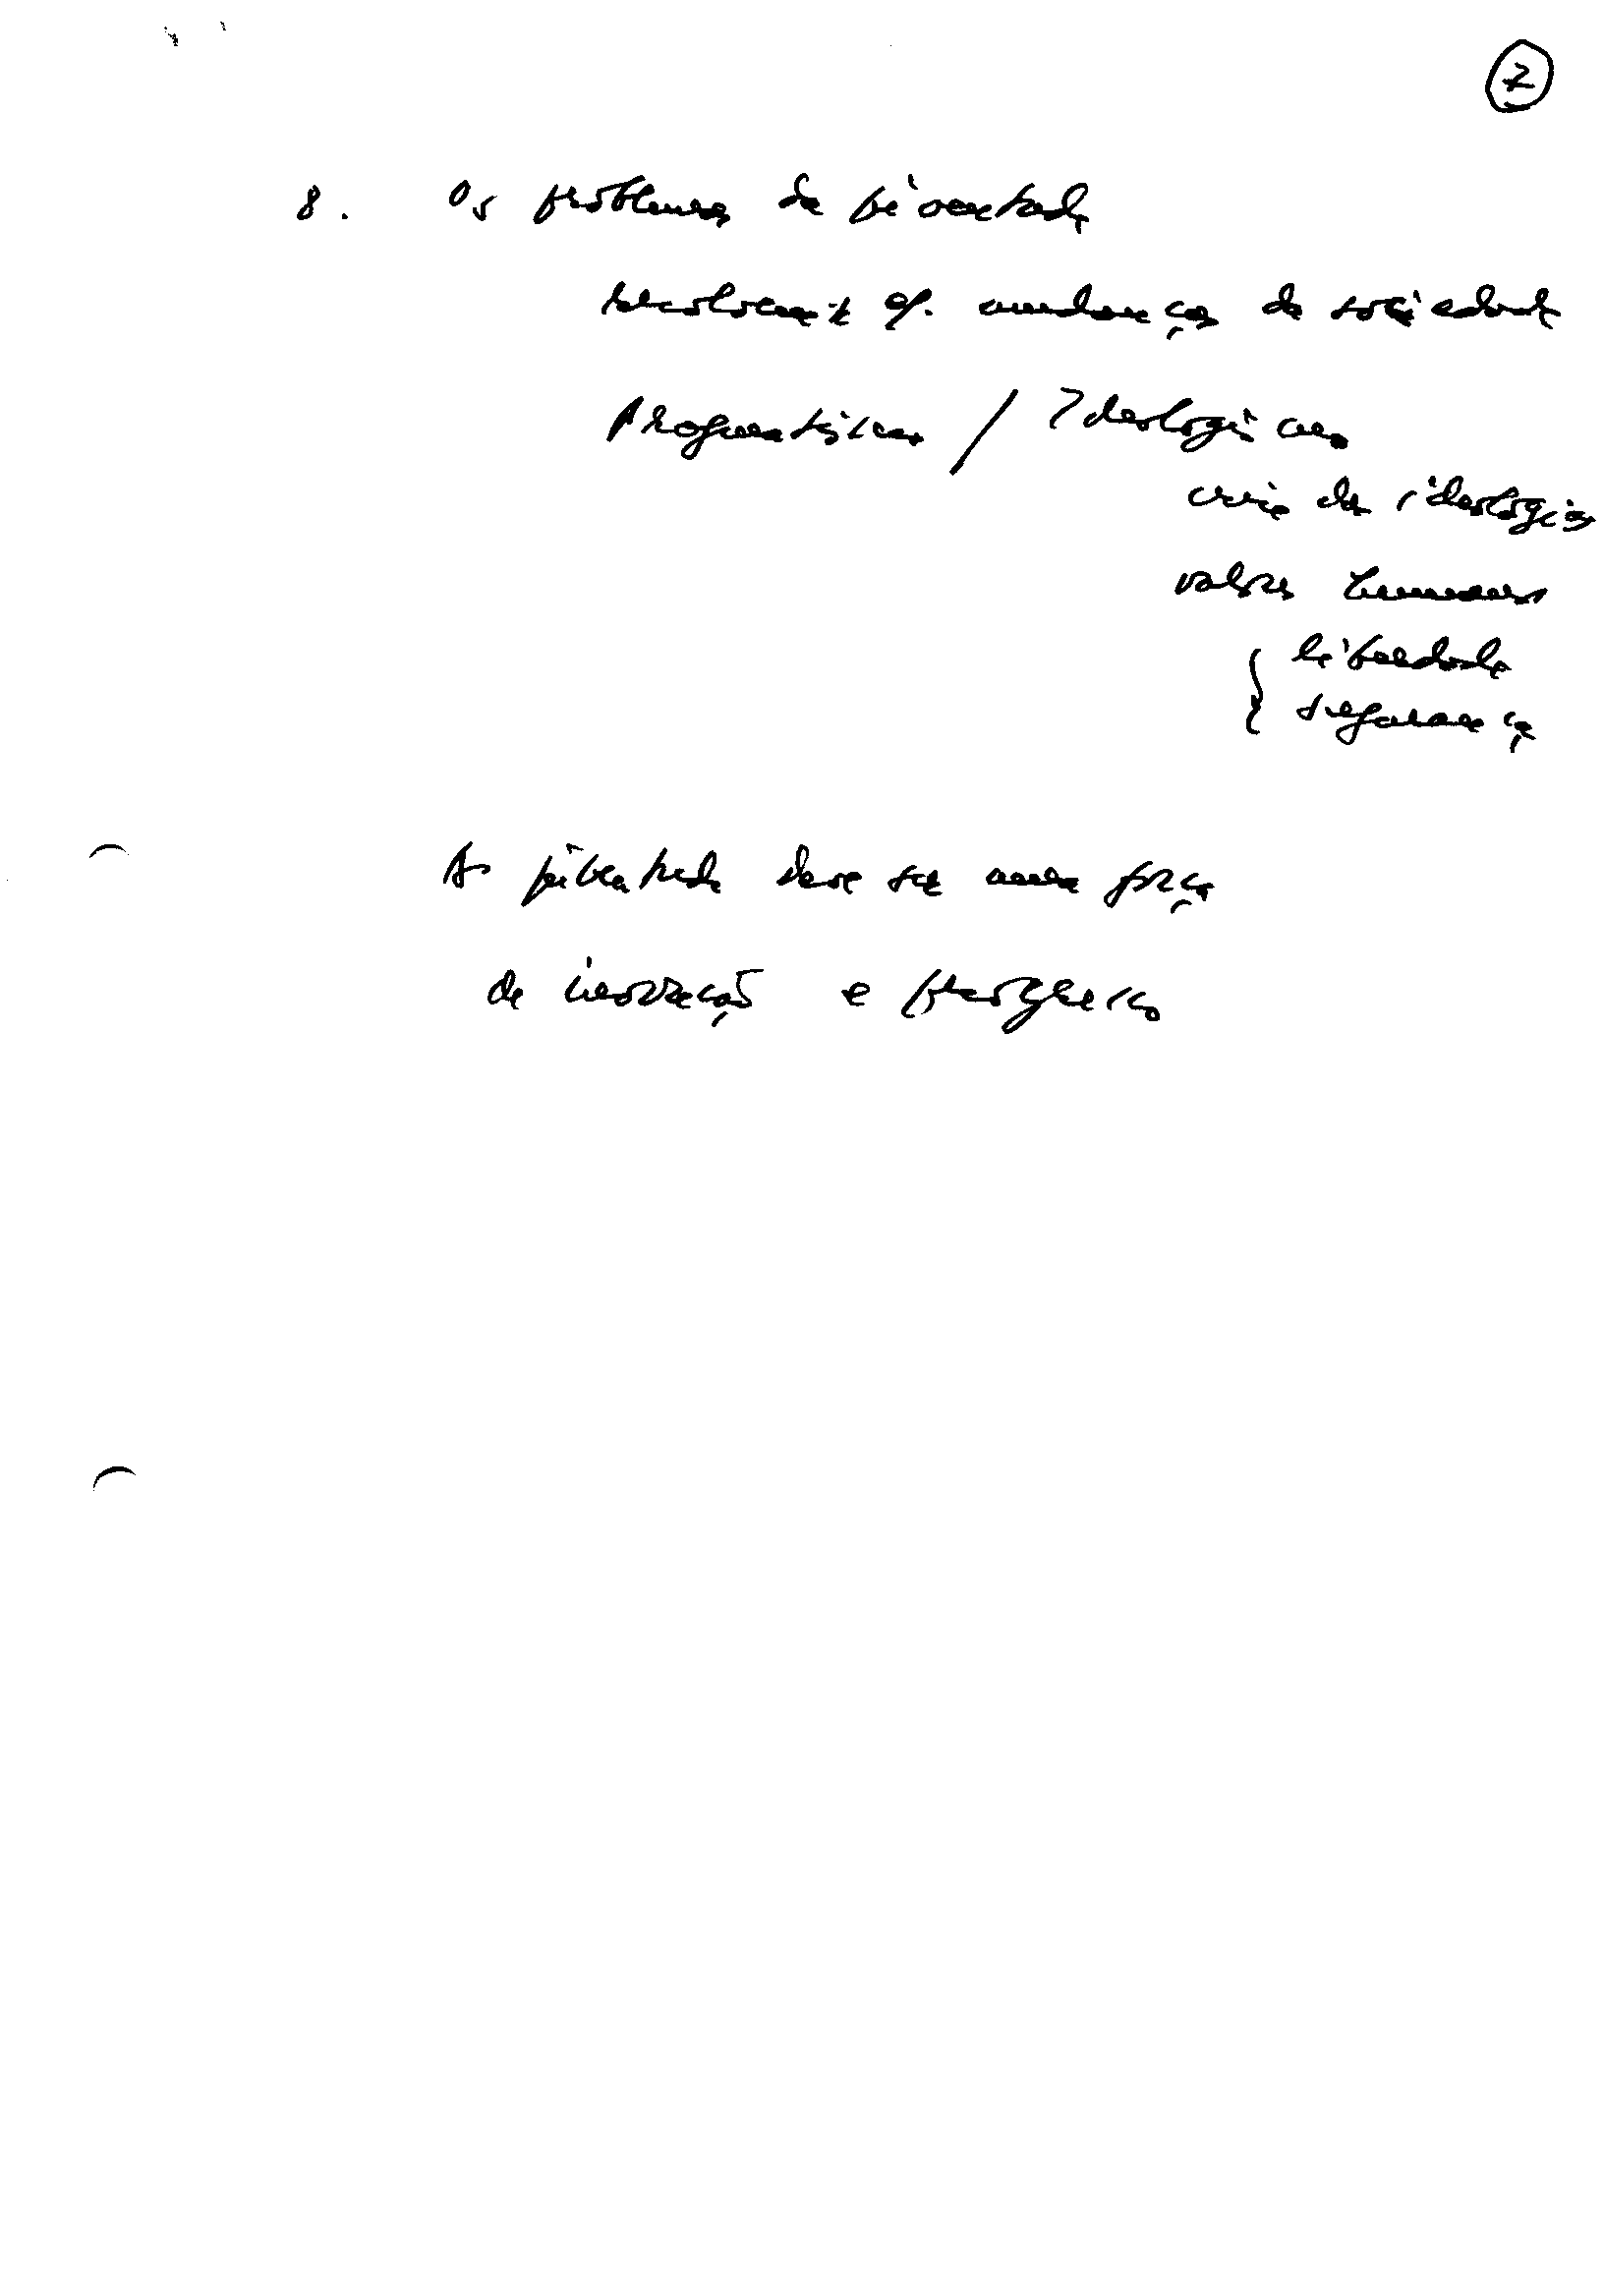 7
8. Os problemas da juventude
mudança da sociedade
Pragmáticas / Ideológicas
crise da ideologia
valores humanos
liberdade
segurança
A juventude deve ser uma força
de inovação e